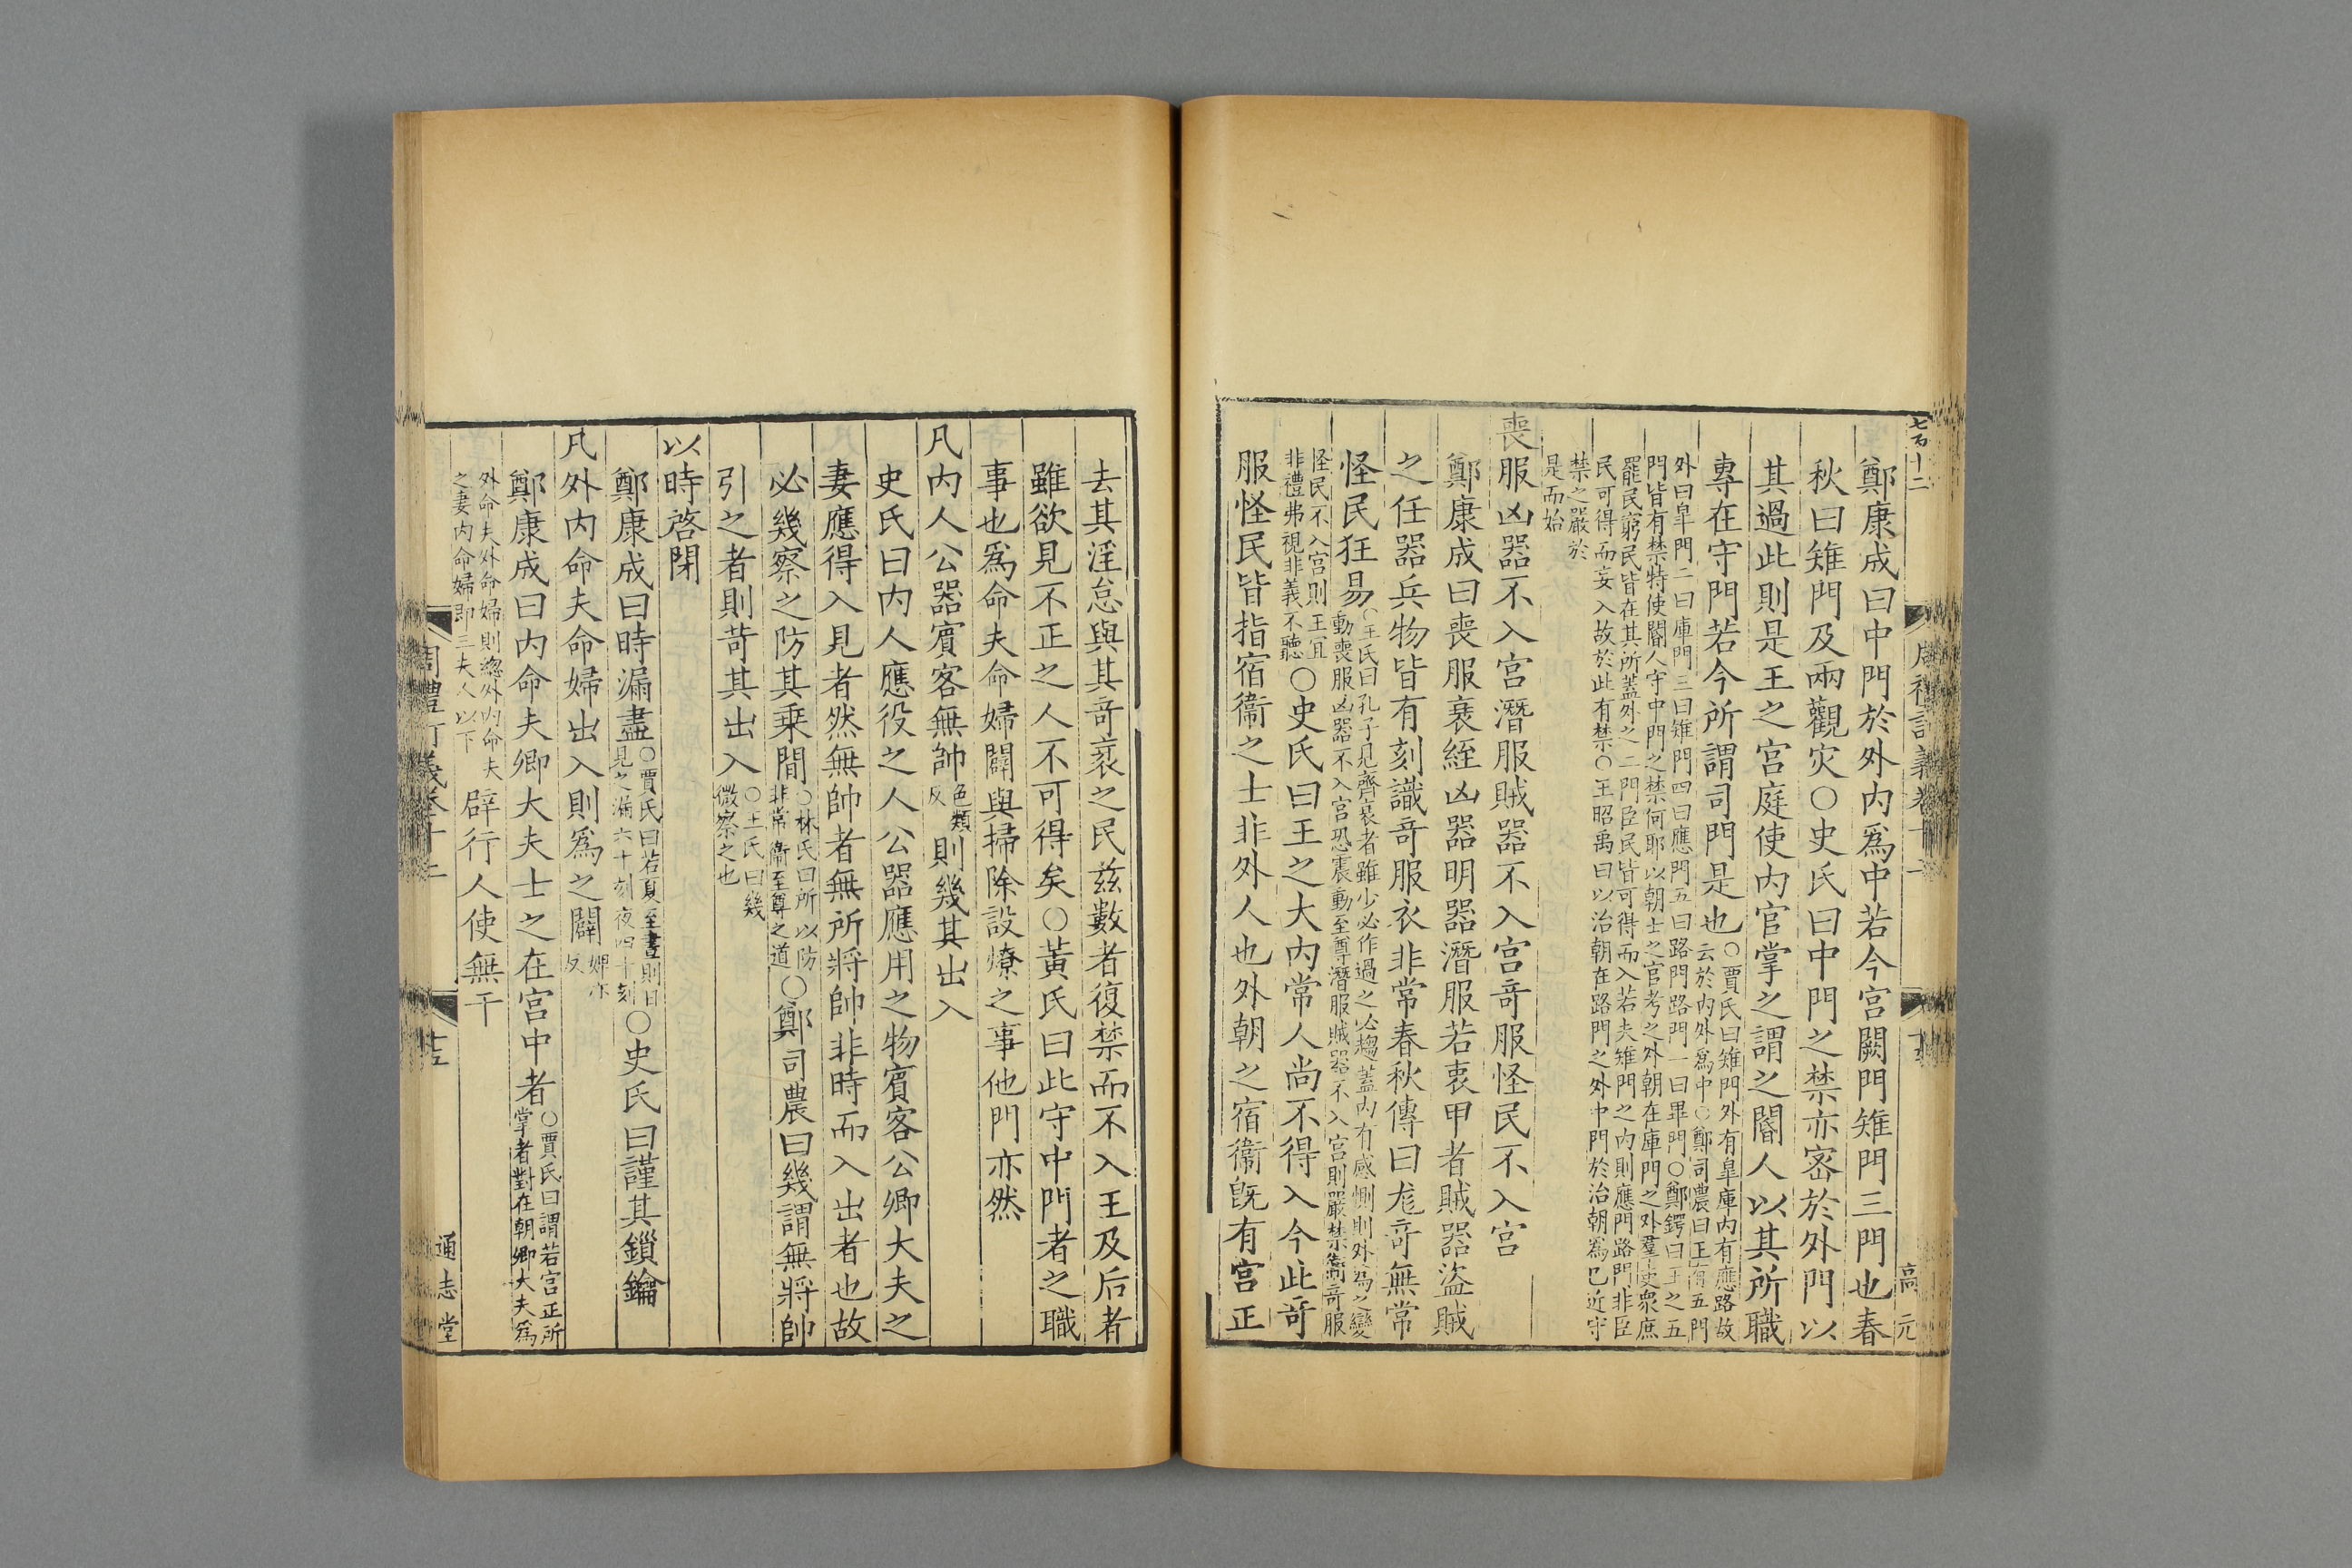 七百十二
周禮訂義卷十二
高元
鄭康成曰中門於外内爲中若今宫闕門雉門三門也春
秋曰雉門及兩觀災○史氏曰中門之禁亦宻於外門以
其過此則是王之宫庭使内官掌之謂之閽人以其所職
專在守門若今所謂司門是也○賈氏曰雉門外有臯庫内有應路故
云於内外爲中○鄭司農曰王有五門
外曰臯門二曰庫門三曰雉門四曰應門五曰路門路門一曰畢門○鄭鍔曰王之五
門皆有禁特使閽人守中門之禁何耶以朝士之官考之外朝在庫門之外羣吏衆庶
罷民窮民皆在其所蓋外之二門臣民皆可得而入若夫雉門之内則應門路門非臣
民可得而妄入故於此有禁○王昭禹曰以治朝在路門之外中門於治朝爲已近守
禁之嚴於
是而始
喪服凶器不入宫潛服賊器不入宫竒服怪民不入宫
鄭康成曰喪服衰絰凶器明器潛服若衷甲者賊器盜賊
之任器兵物皆有刻識竒服衣非常春秋傳曰尨竒無常
怪民狂易○王氏曰孔子見齊衰者雖少必作過之必趨蓋内有感惻則外爲之變
動喪服凶器不入宫恐震動至尊潛服賊器不入宫則嚴禁衛竒服
怪民不入宫則王宜
非禮弗視非義不聽○史氏曰王之大内常人尚不得入今此竒
服怪民皆指宿衞之士非外人也外朝之宿衞旣有宫正
去其淫怠與其竒衺之民兹數者復禁而不入王及后者
雖欲見不正之人不可得矣○黃氏曰此守中門者之職
事也爲命夫命婦闢與掃除設燎之事他門亦然
凡内人公器賔客無帥色類
反則幾其出入
史氏曰内人應役之人公器應用之物賔客公卿大夫之
妻應得入見者然無帥者無所將帥非時而入出者也故
必幾察之防其乗間○林氏曰所以防
非常衞至尊之道○鄭司農曰幾謂無將帥
引之者則苛其出入○王氏曰幾
微察之也
以時啓閉
鄭康成曰時漏盡○賈氏曰若夏至晝則日
見之漏六十刻夜四十刻○史氏曰謹其鎖鑰
凡外内命夫命婦出入則爲之闢婢亦
反
鄭康成曰内命夫卿大夫士之在宫中者○賈氏曰謂若宫正所
掌者對在朝卿大夫爲
外命夫外命婦則緫外内命夫
之妻内命婦即三夫人以下辟行人使無干
周禮訂義卷十二
通志堂